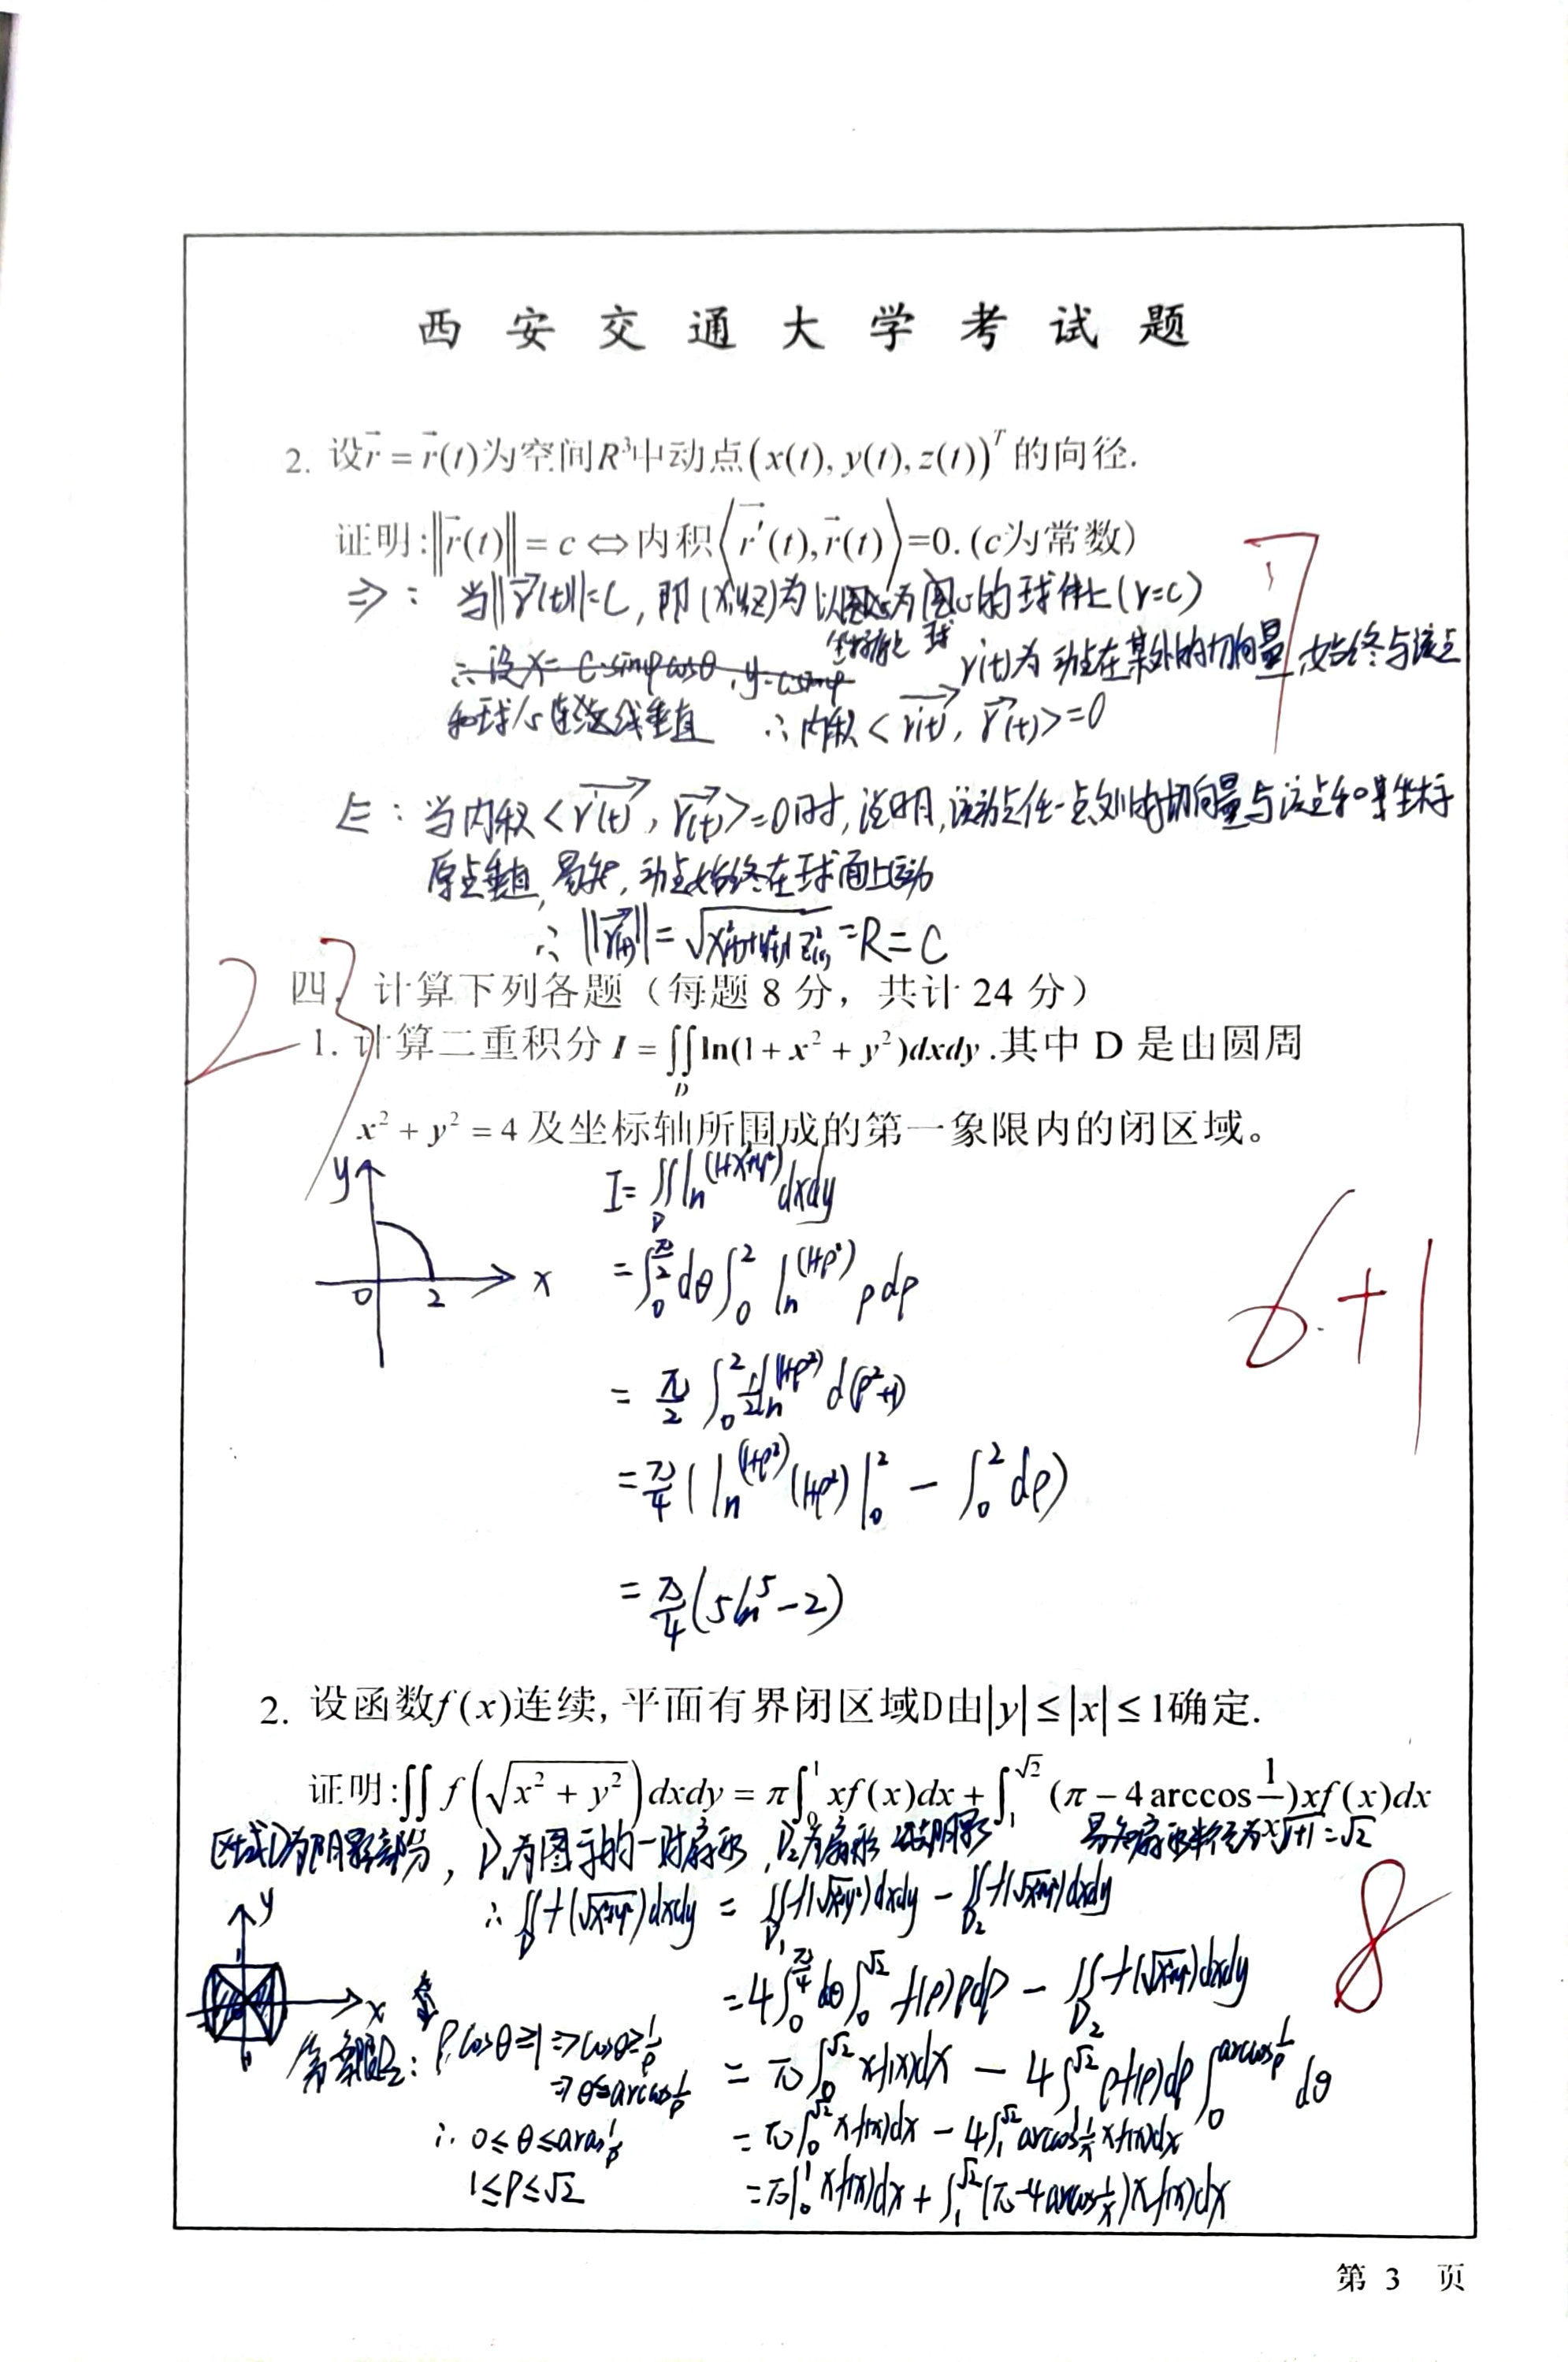 西安交通大学考试题
2. 设r⃗ = r⃗(t)为空间R³中动点(x(t), y(t), z(t))ᵀ 的向径.
证明:‖r⃗(t)‖ = c ⇔ 内积⟨r⃗′(t), r⃗(t)⟩=0. (c为常数)
7
⇒: 当‖r⃗(t)‖=C, 即(x,y,z)为以 为 心的球体上(r=c)
坐标原点 球
∴设x= c·sinφcosθ, y=csinφ r′(t)为动点在某处的切向量 始终与该点
和球心连线垂直 ∴内积<r′(t), r(t)>=0
⇐: 当内积<r′(t), r(t)>=0时, 说明, 该动点任一点处的切向量与该点和 坐标
原点垂直, 易知, 动点始终在球面上运动
∴ ‖r(t)‖=√x²(t)+y²(t)+z²(t) =R=C
23
四、计算下列各题（每题 8 分，共计 24 分）
1. 计算二重积分 I = ∬_D ln(1 + x² + y²)dxdy .其中 D 是由圆周
x² + y² = 4 及坐标轴所围成的第一象限内的闭区域。
y x 0 2
I= ∬_D ln(1+x²+y²) dxdy
= ∫₀^{π/2} dθ ∫₀² ln(1+ρ²) ρdρ
6+1
= π/2 ∫₀² 1/2 ln(1+ρ²) d(ρ²+1)
= π/4 ( ln(1+ρ²) (1+ρ²) |₀² − ∫₀² dρ)
= π/4 (5ln5 − 2)
2. 设函数f(x)连续, 平面有界闭区域D由|y| ≤ |x| ≤ 1确定.
证明:∬ f(√x² + y²) dxdy = π∫₀¹ xf(x)dx + ∫₁^√2 (π − 4 arccos 1/x)xf(x)dx
区域D为阴影部分, D₁为图示的一对扇形, D₂为扇形 阴影 易知扇形半径为√1+1=√2
∴ ∬_D f(√x²+y²)dxdy = ∬_{D₁} f(√x²+y²)dxdy − ∬_{D₂} f(√x²+y²)dxdy
8
y x
= 4∫₀^{π/4} dθ ∫₀^√2 f(ρ)ρdρ − ∬_{D₂} f(√x²+y²)dxdy
ρcosθ≥1 ⇒ cosθ≥1/ρ
⇒ θ≤arccos 1/ρ
= π∫₀^√2 xf(x)dx − 4∫₁^√2 ρf(ρ)dρ ∫₀^{arccos 1/ρ} dθ
∴ 0≤θ≤arccos 1/ρ
= π∫₀^√2 xf(x)dx − 4∫₁^√2 arccos 1/x xf(x)dx
1≤ρ≤√2
= π∫₀¹ xf(x)dx + ∫₁^√2 (π−4arccos 1/x)xf(x)dx
第 3 页